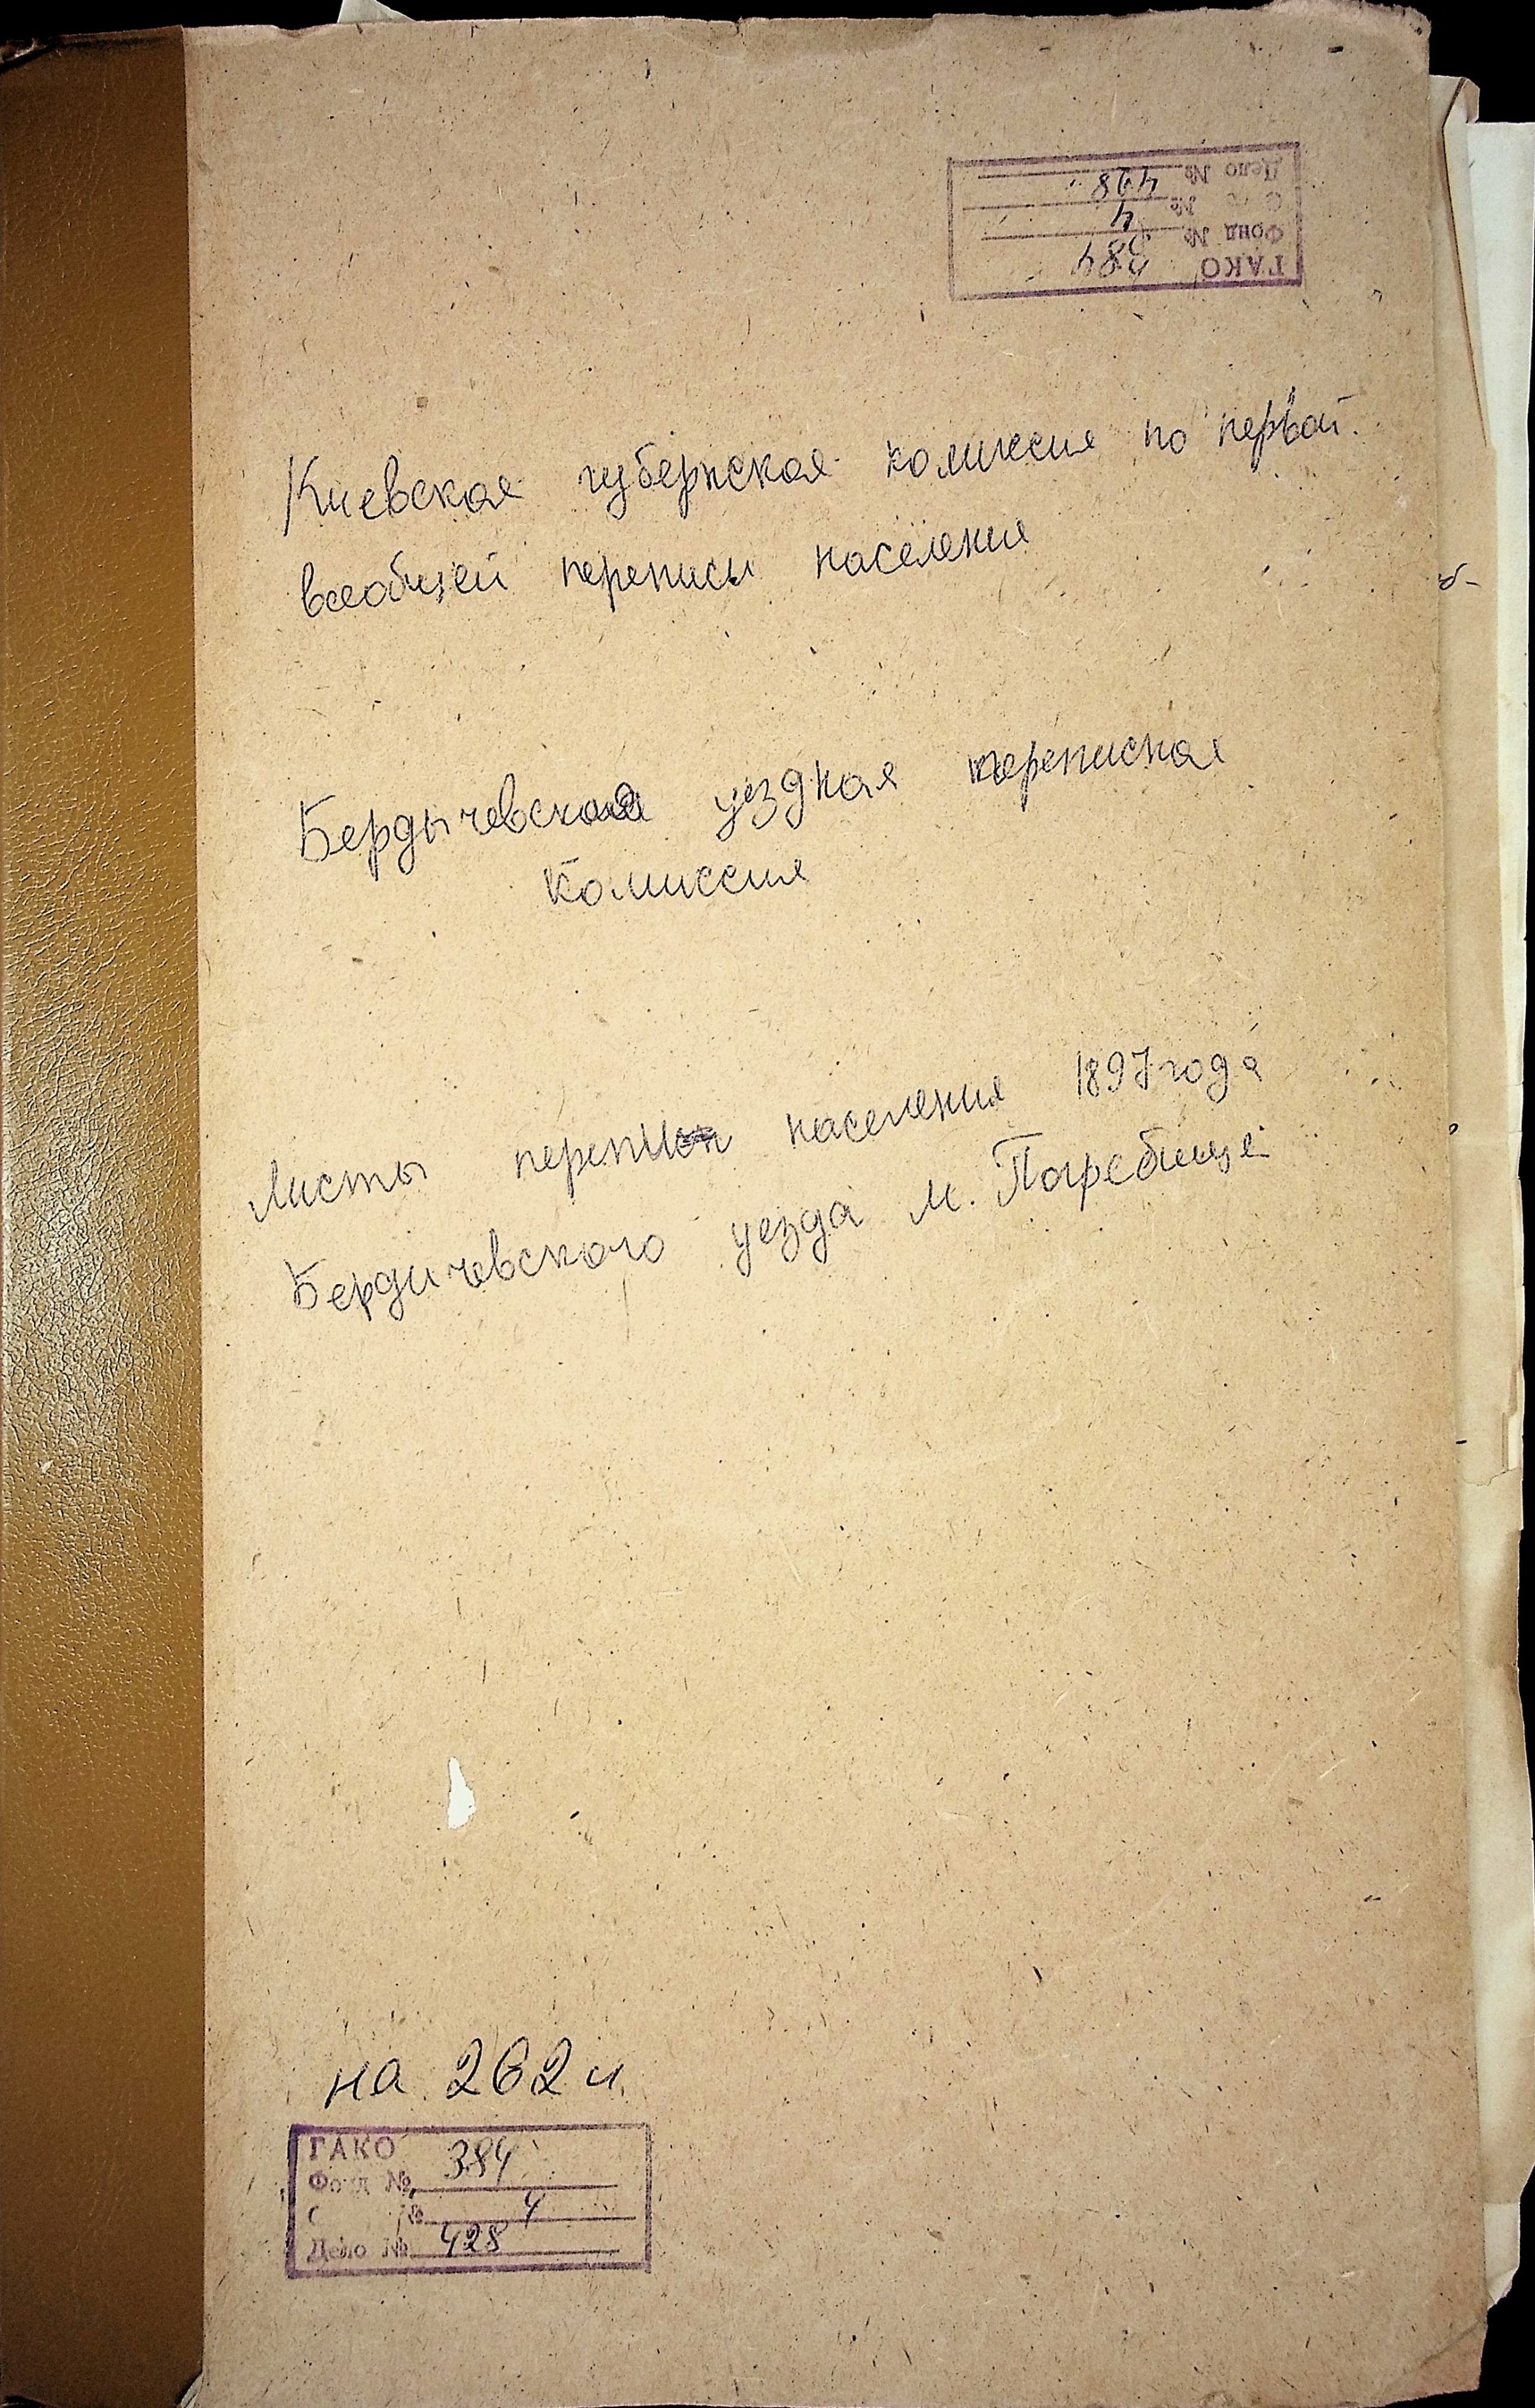 ГАКО 384
Фонд №
О № 4
Дело № 428
Киевская губернская комиссия по первой
всеобщей переписи населения
Бердычевская уездная переписная
комиссия
Листы переписи населения 1897 года
Бердичевского уезда м. Погребище
на 262 л.
ГАКО
Фонд № 384
О № 4
Дело № 428